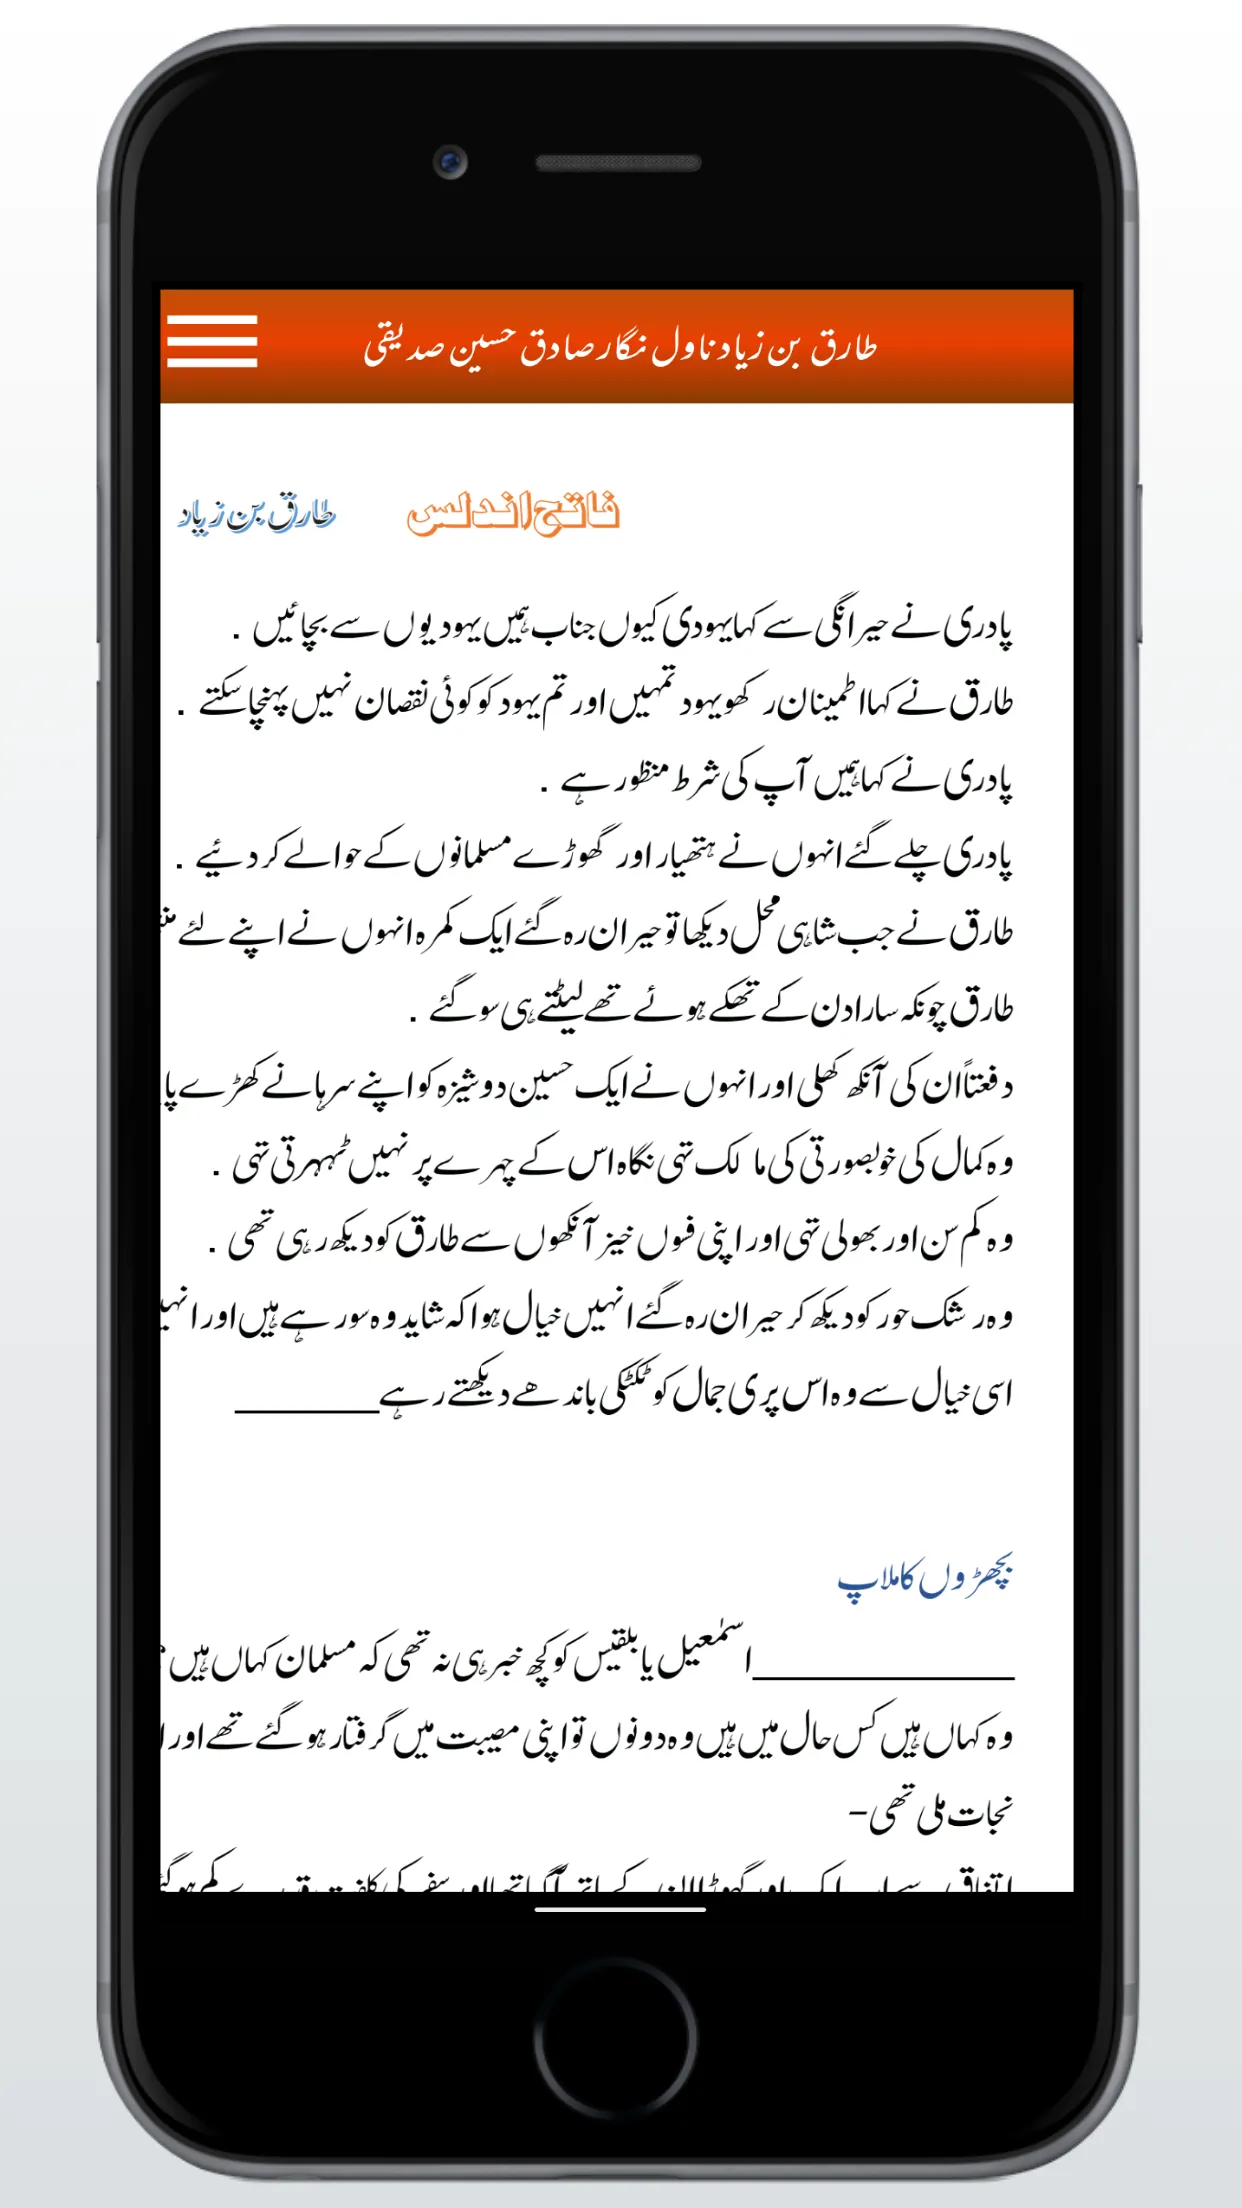 طارق بن زیاد ناول نگار صادق حسین صدیقی
فاتح اندلس طارق بن زیاد
پادری نے حیرانگی سے کہا یہودی کیوں جناب ہمیں یہودیوں سے بچائیں .
طارق نے کہا اطمینان رکھو یہود تمہیں اور تم یہود کو کوئی نقصان نہیں پہنچا سکتے .
پادری نے کہا ہمیں آپ کی شرط منظور ہے .
پادری چلے گئے انہوں نے ہتھیار اور گھوڑے مسلمانوں کے حوالے کر دئیے .
طارق نے جب شاہی محل دیکھا تو حیران رہ گئے ایک کمرہ انہوں نے اپنے لئے
طارق چونکہ سارا دن کے تھکے ہوئے تھے لیٹتے ہی سو گئے .
دفعتاً ان کی آنکھ کھلی اور انہوں نے ایک حسین دوشیزہ کو اپنے سرہانے کھڑے پا
وہ کمال کی خوبصورتی کی مالک تہی نگاہ اس کے چہرے پر نہیں ٹہرتی تہی .
وہ کم سن اور بھولی تہی اور اپنی فسوں خیز آنکھوں سے طارق کو دیکھ رہی تھی .
وہ رشک حور کو دیکھ کر حیران رہ گئے انہیں خیال ہوا کہ شاید وہ سو رہے ہیں اور
اسی خیال سے وہ اس پری جمال کو ٹکٹکی باندھے دیکھتے رہے_______
بچھڑوں کا ملاپ
_____________اسمٰعیل یا بلقیس کو کچھ خبر ہی نہ تھی کہ مسلمان کہاں ہیں
وہ کہاں ہیں کس حال میں ہیں وہ دونوں تو اپنی مصیبت میں گرفتار ہو گئے تھے اور
نجات ملی تھی-